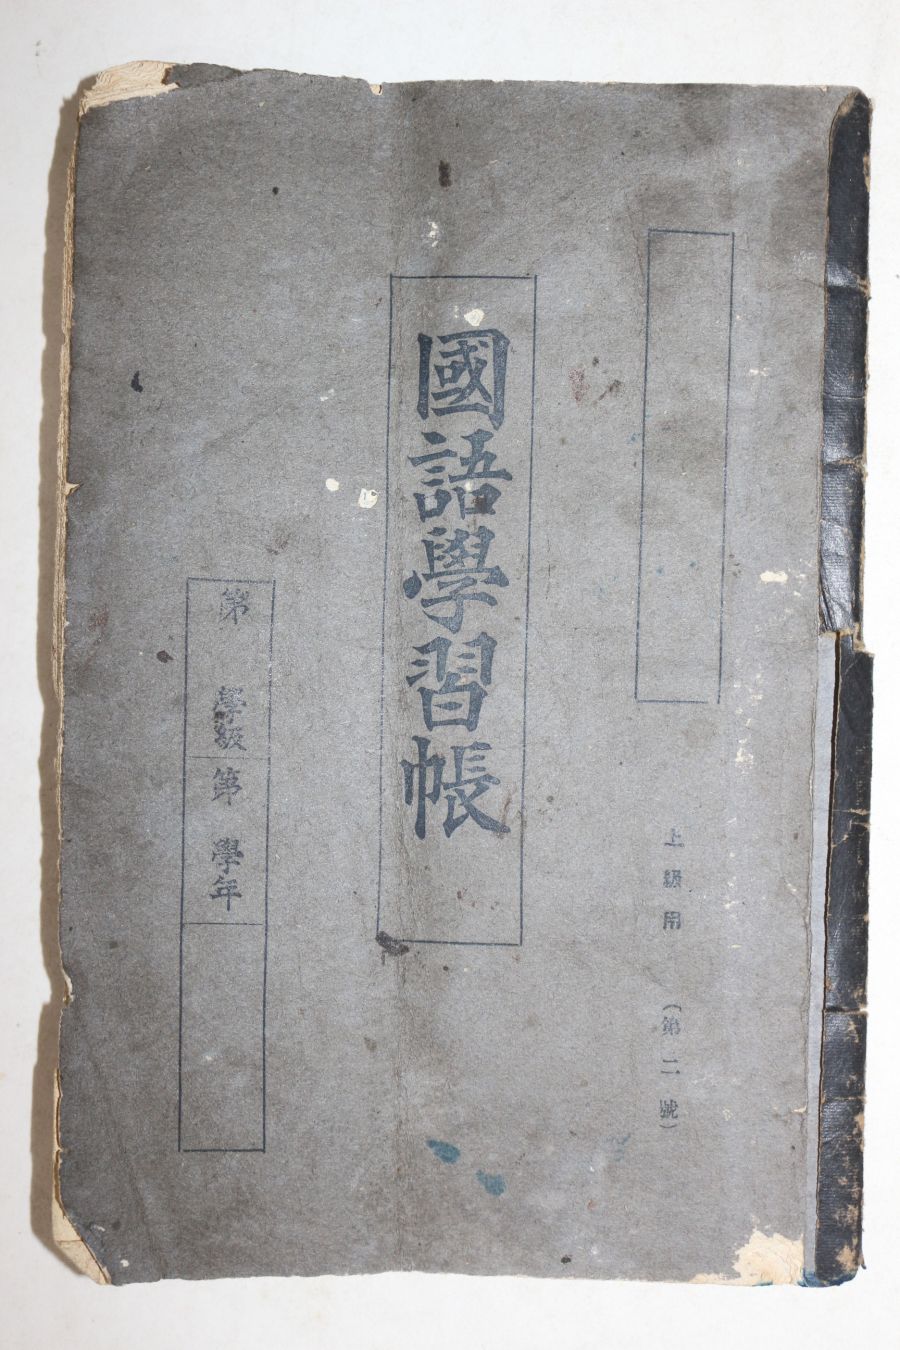 上級用 （第二號）
國語學習帳
第 學級
第 學年